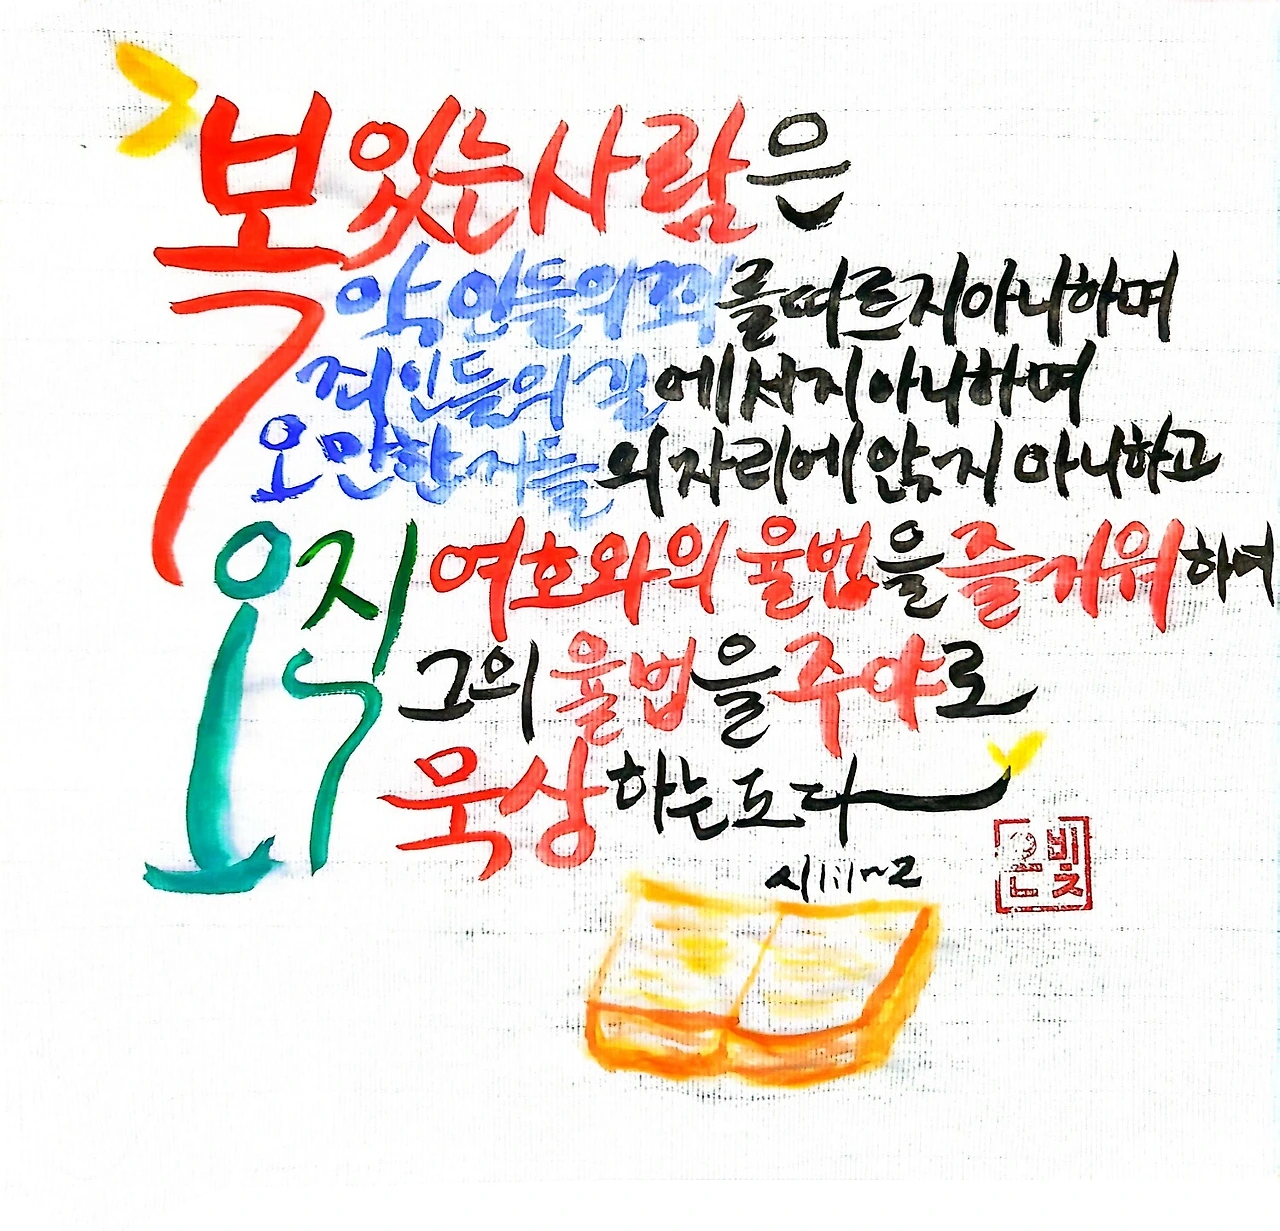 복 있는 사람은
악인들의 꾀를 따르지 아니하며
죄인들의 길에 서지 아니하며
오만한 자들의 자리에 앉지 아니하고
오직 여호와의 율법을 즐거워하여
그의 율법을 주야로
묵상하는도다
시1:1~2
온빛